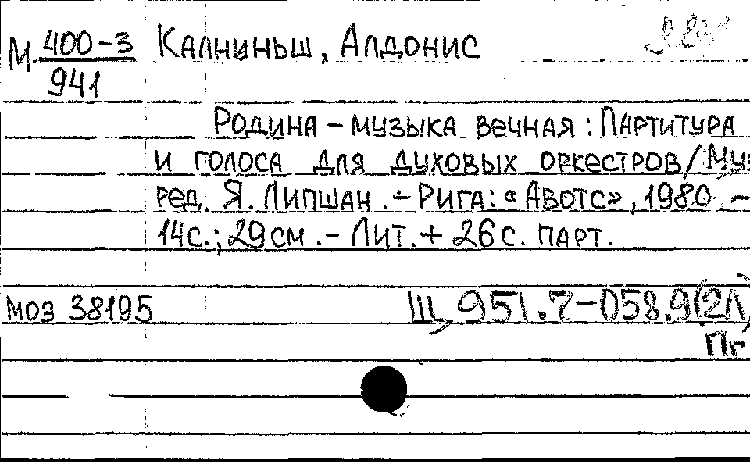 М 400-3 Калниньш, Алдонис
941
Родина - музыка вечная : Партитура
и голоса для духовых оркестров/Му
ред. Я. Липшан. - Рига: «Авотс», 1980. -
14с.; 29см. - Лит. + 26с. парт.
моз 38195 Щ 951.7-058.9(2Л)
Пг